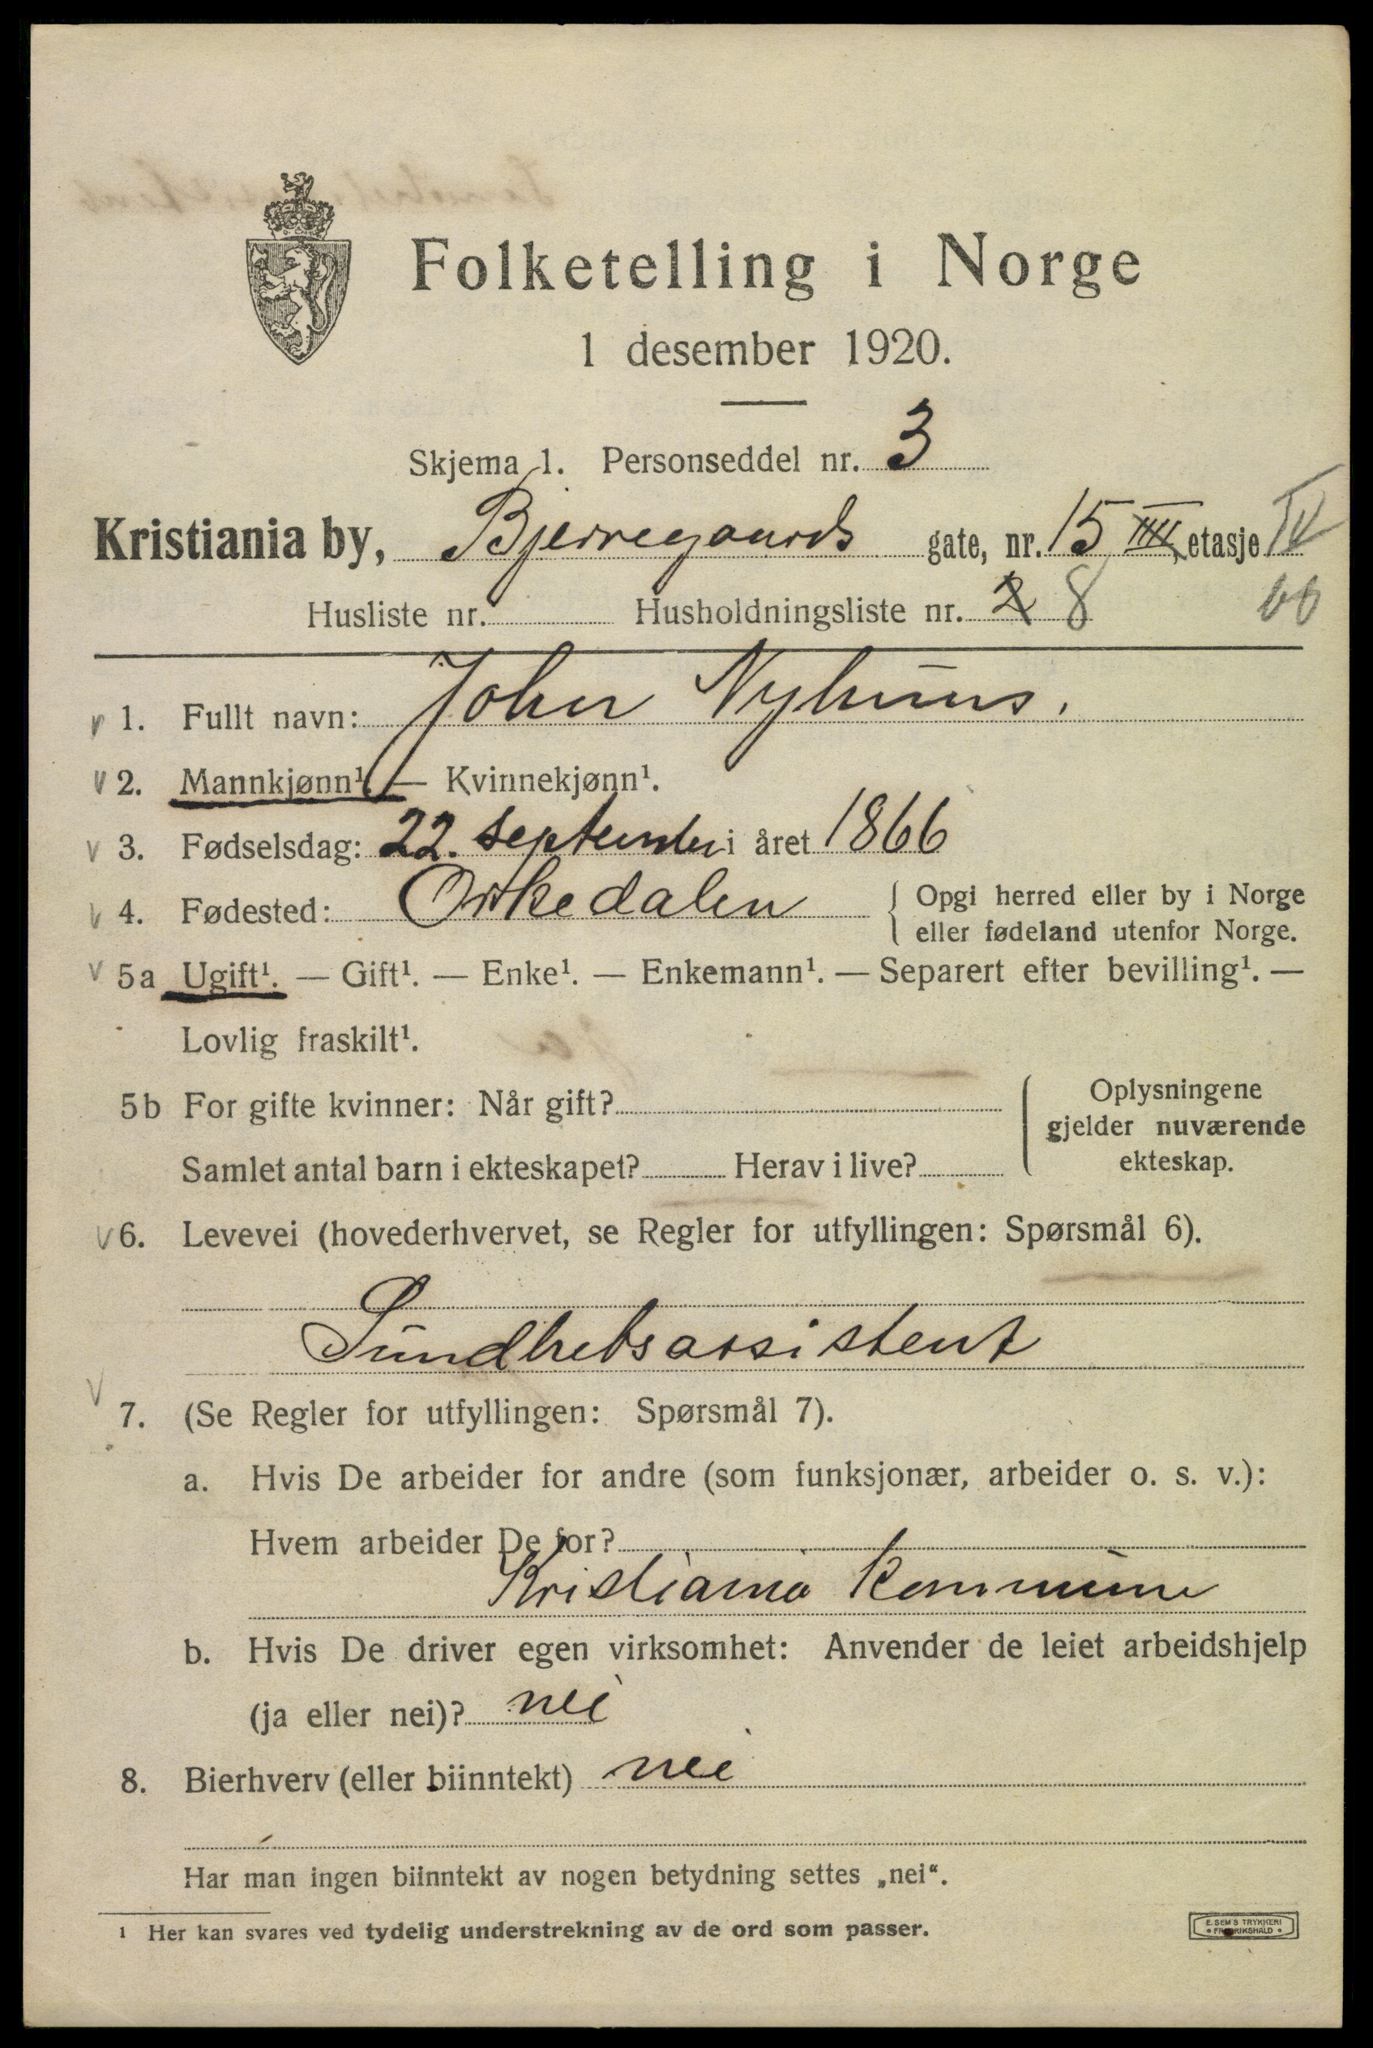 Folketelling i Norge
1 desember 1920.
Skjema 1. Personseddel nr. 3
Kristiania by, Bjerregaards gate, nr. 15 IIII, etasje IV
Husliste nr. Husholdningsliste nr. 2 8 bb
v 1. Fullt navn: John Nyhuus.
v 2. Mannkjønn¹. — Kvinnekjønn¹.
v 3. Fødselsdag: 22. september i året 1866
v 4. Fødested: Orkedalen { Opgi herred eller by i Norge
eller fødeland utenfor Norge.
v 5a Ugift¹. — Gift¹. — Enke¹. — Enkemann¹. — Separert efter bevilling¹. —
Lovlig fraskilt¹.
5b For gifte kvinner: Når gift? { Oplysningene
gjelder nuværende
Samlet antal barn i ekteskapet? Herav i live? ekteskap.
v 6. Levevei (hovederhvervet, se Regler for utfyllingen: Spørsmål 6).
Sundhetsassistent
v 7. (Se Regler for utfyllingen: Spørsmål 7).
a. Hvis De arbeider for andre (som funksjonær, arbeider o. s. v.):
Hvem arbeider De for?
Kristiania kommune
b. Hvis De driver egen virksomhet: Anvender de leiet arbeidshjelp
(ja eller nei)? nei
8. Bierhverv (eller biinntekt) nei
Har man ingen biinntekt av nogen betydning settes „nei“.
¹ Her kan svares ved tydelig understrekning av de ord som passer.
E. SEM'S TRYKKERI
FREDRIKSHALD